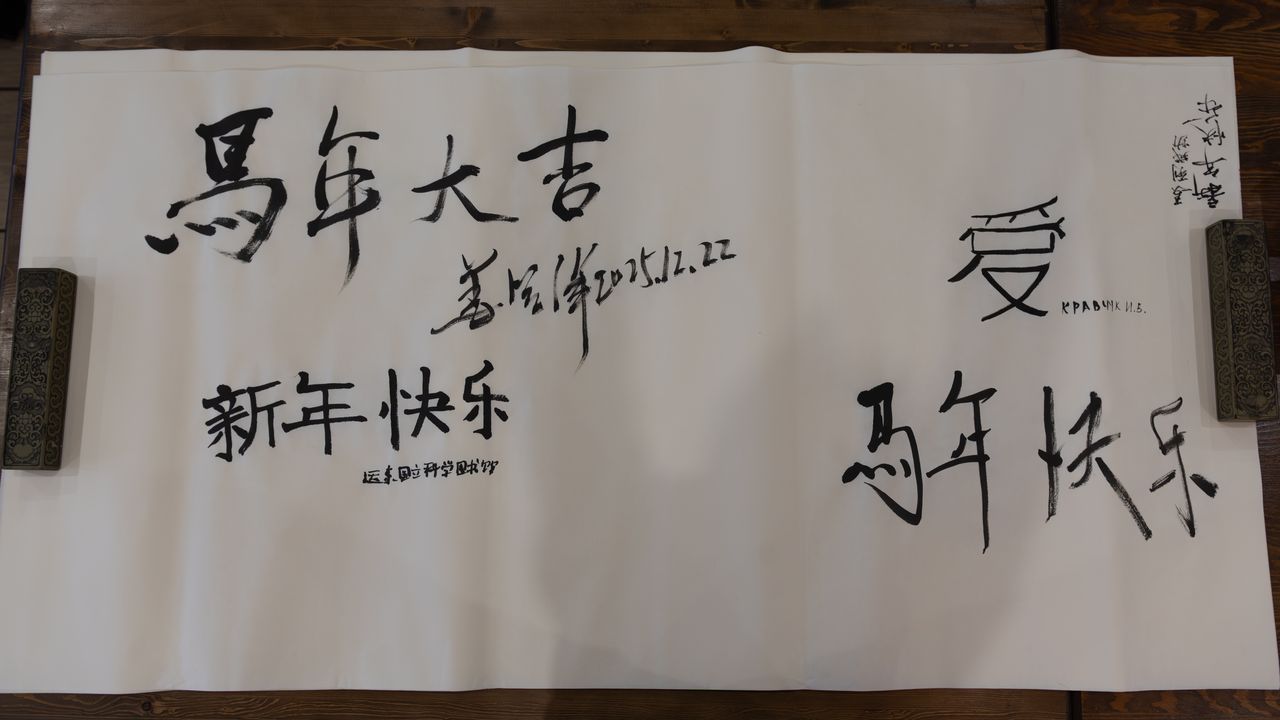 馬年大吉
2025.12.22
新年快乐
远东国立科学图书馆
爱
КРАВЧУК И.В.
馬年快乐
新年快乐